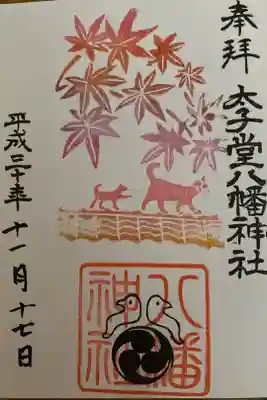 奉拝
太子堂八幡神社
八幡
神社
平成三十年十一月十七日